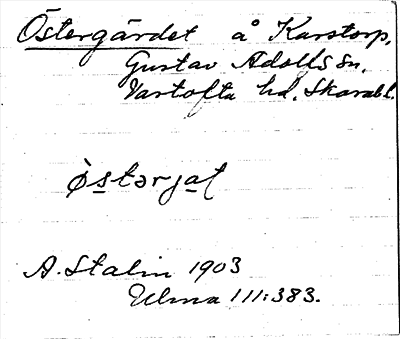 Östergärdet å Karstorp,
Gustav Adolfs sn.
Vartofta hd. Skarabl.
òstərjat
A. Stalin 1903
Ulma 111:383.